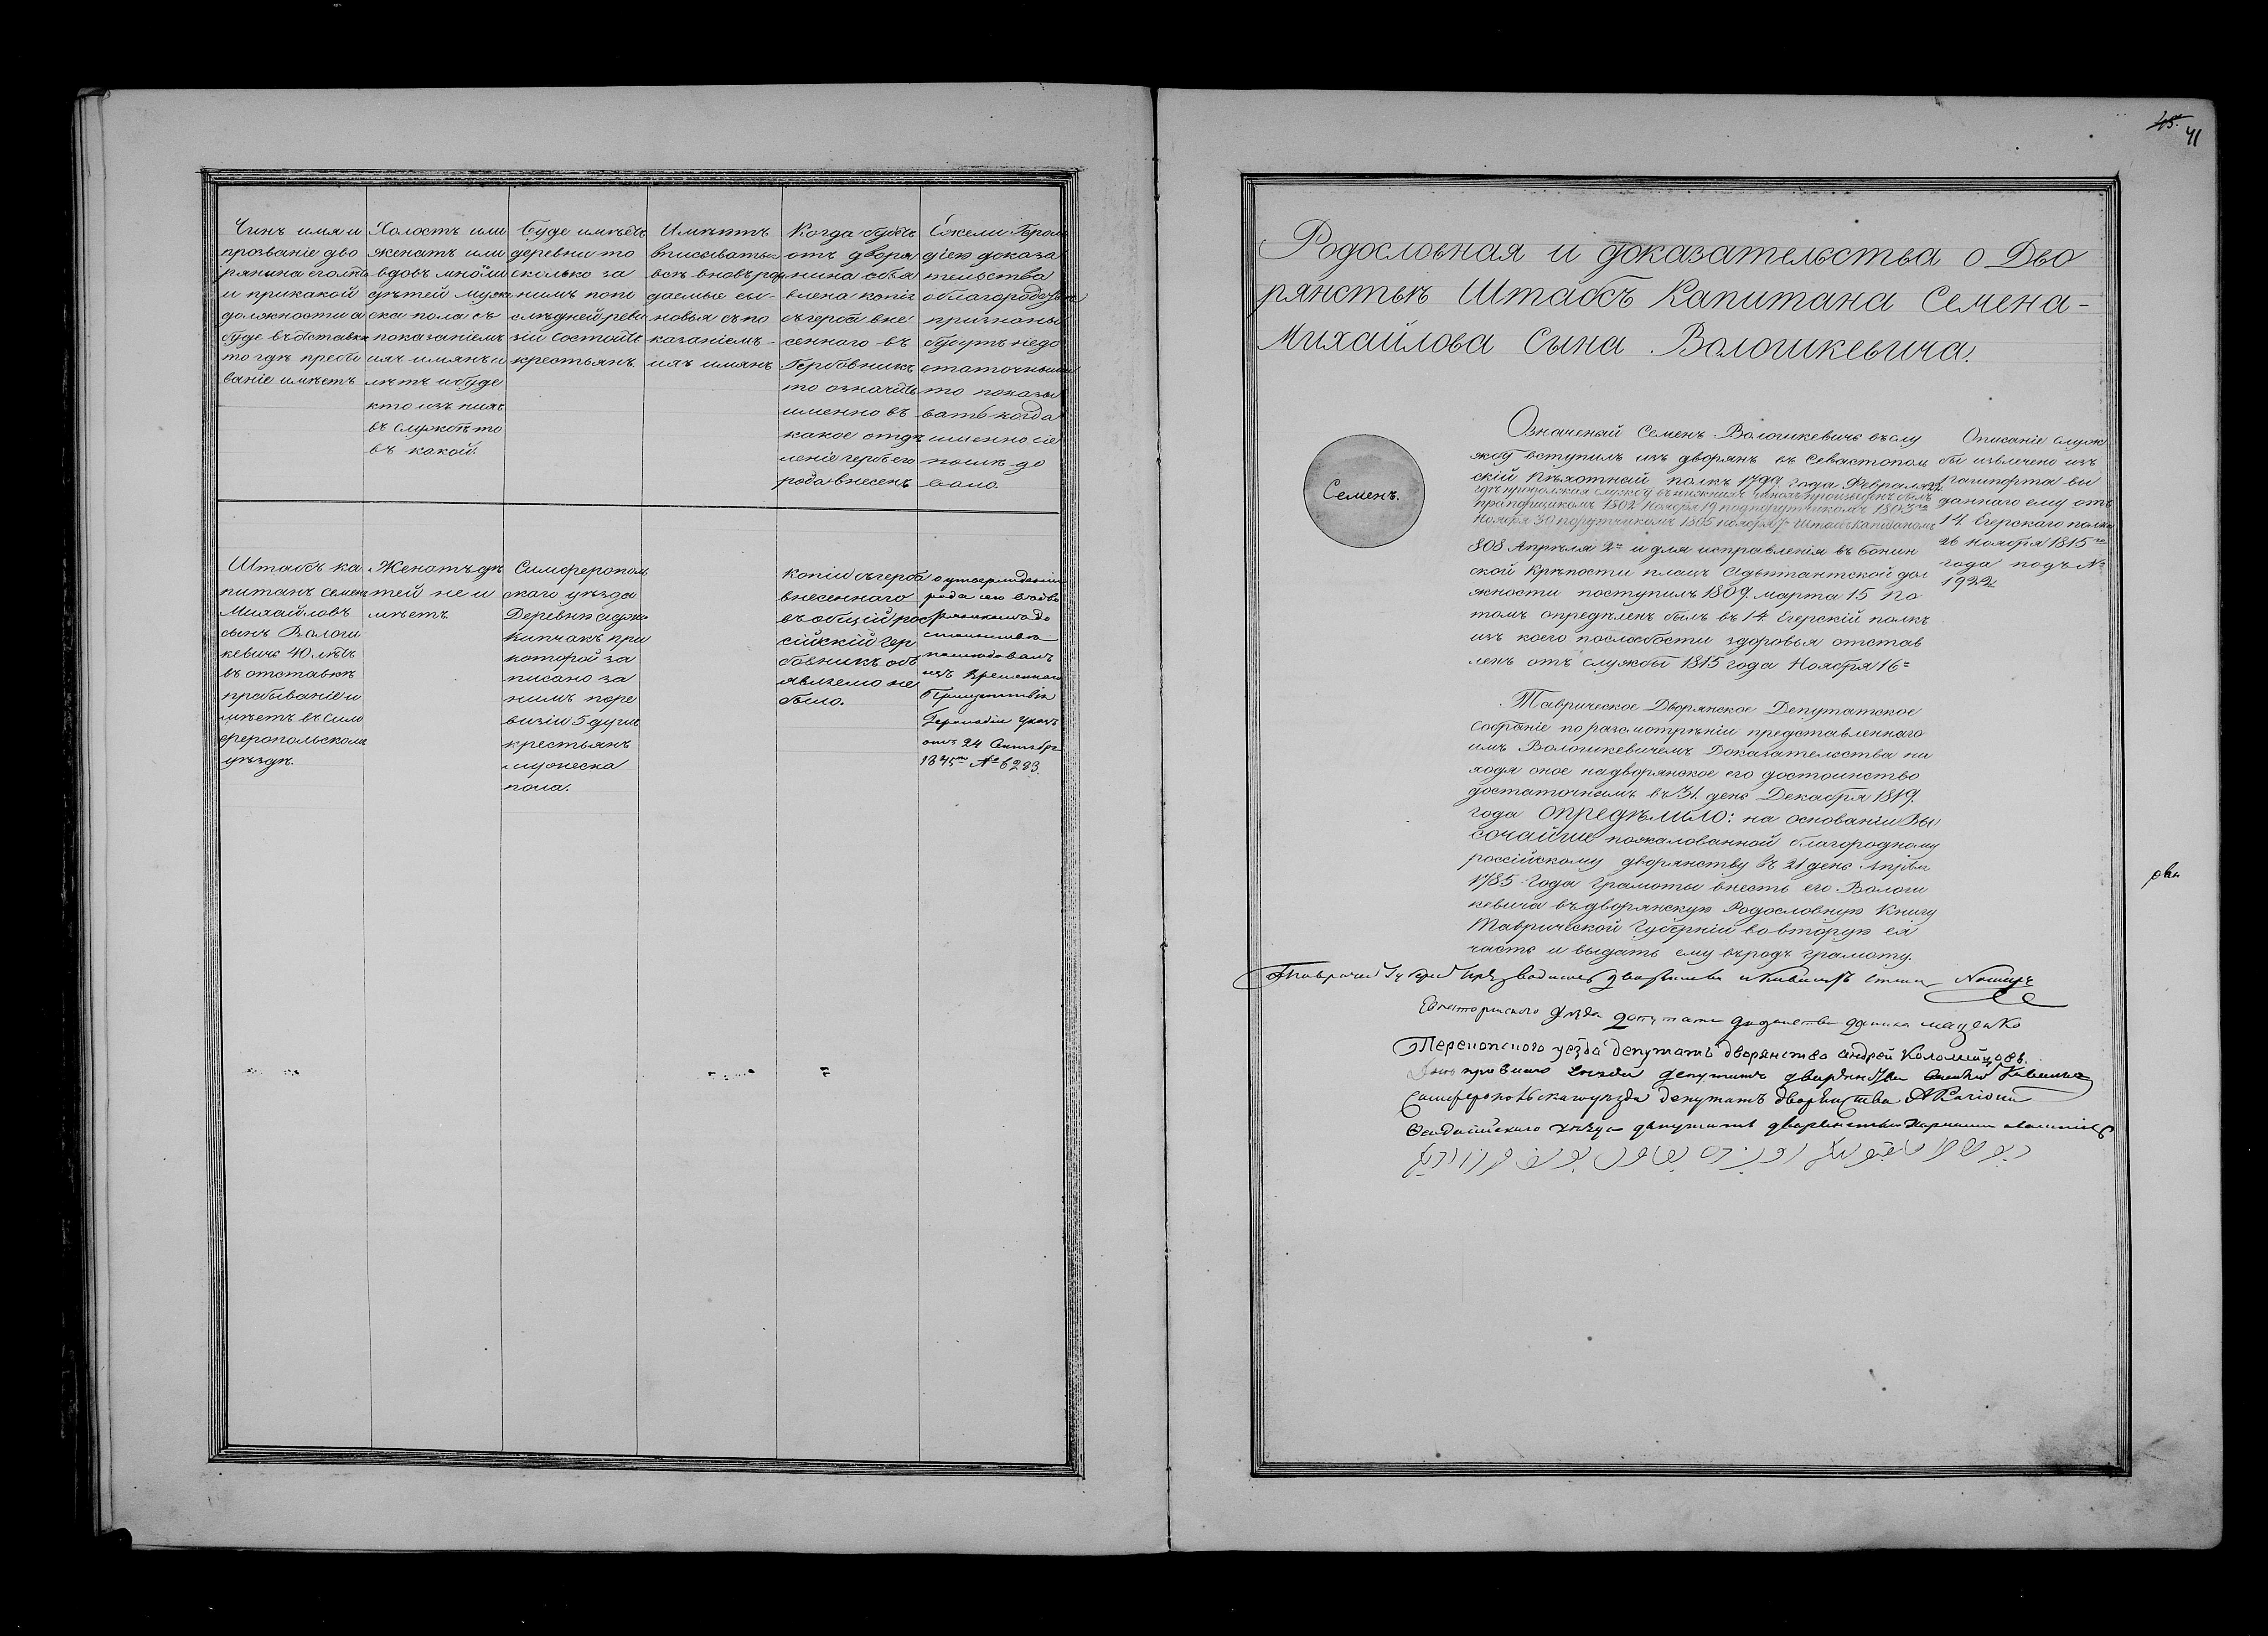 Чинъ имя и
прозваніе дво
рянина его лѣта
и при какой
должности а
буде въ отставкѣ
то гдѣ пребы
ваніе имѣетъ
Холостъ или
женатъ или
вдовъ много ли
дѣтей муже
ска пола съ
показаніемъ
ихъ имянъ и
лѣтъ и буде
кто изъ нихъ
въ службѣ то
въ какой.
Буде имѣетъ
деревни то
сколько за
нимъ попо
слѣдней реви
зіи состоитъ
крестьянъ.
Имѣютъ
вписыватьс
всѣ вновь рож
даемые сы-
новья съ по
казаніемъ-
ихъ имянъ
Когда будетъ
отъ дворя
нина объя
влена копія
съ герба вне
сеннаго въ
Гербовникъ
то означить
именно въ
какое отдѣ
леніе гербъ его
рода внесенъ
Ежели Героль
діею доказа
тельства
о благородствѣ
признаны
будутъ недо
статочными
то показы
вать когда
именно сіе
послѣдо
вало.
Штабсъ ка
питанъ Семенъ
Михайловъ
сынъ Волош
кевичъ 40 лѣтъ
въ отставкѣ
пребываніе и
мѣетъ въ Сим
феропольскомъ
уѣздѣ.
Женатъ дѣ
тей не и
мѣетъ
Симферополь
скаго уѣзда
Деревнѣ аджи
Кипчакъ при
которой за
писано за
нимъ поре
визіи 5 душъ
крестьянъ
мужеска
пола.
Копіи съ герба
внесеннаго
въ общій рос
сійскій гер
бовникъ объ
являемо не
было.
о утвержденіи
рода сего въ дво
рянскомъ до
стоинствѣ
послѣдовалъ
изъ Временнаго
Присутствія
Герольдіи Указъ
отъ 24 Сентября
1845го № 6283.
45.
41
Родословная и доказательства о Дво
рянствѣ Штабсъ Капитана Семена-
Михайлова Сына Волошкевича.
Семенъ.
Означеный Семенъ Волошкевичъ въ слу
жбу вступилъ изъ дворянъ въ Севастополь
скій Пѣхотный полкъ 1799. года Февраля 22
гдѣ продолжая службу въ нижнихъ чинахъ произведенъ былъ
прапорщикомъ 1802 Ноября 19 подпорутчикомъ 1803го
Ноября 30 порутчикомъ 1805 ноября Штабсъ Капитаномъ
808 Апрѣля 2го и для исправленія въ Бонин
ской Крѣпости плацъ Адъютантской дол
жности поступилъ 1809. марта 15 по
томъ опредѣленъ былъ въ 14 Егерскій полкъ
изъ коего послабости здоровья отстав
ленъ отъ службы 1815 года Ноября 16го
Описаніе служ
бы извлечено изъ
пашпорта вы
даннаго ему отъ
14 Егерскаго полка
26 ноября 1815го
года подъ №
1922
Таврическое Дворянское Депутатское
Собраніе по разсмотрѣніи представленнаго
имъ Волошкевичемъ Доказателства на
ходя оное на дворянское его достоинство
достаточнымъ въ 31. день Декабря 1819.
года опредѣлило: на основаніи Вы
сочайше пожалованной благородному
россійскому дворянству въ 21 день Апрѣля
1785 года грамоты внесть его Волош
кевича въ дворянскую Родословную Книгу
Таврической Губерніи во вторую ея
часть и выдать ему въ родъ грамоту.
Евпаторискаго уѣзда депутатъ дворянства
Перекопского уезда депутатъ дворянства андрей Коломийцовъ.
уѣзда депутатъ дворянства
Симферопольскаго уѣзда депутатъ дворянства
Феодосійскаго уѣзда депутатъ дворянства